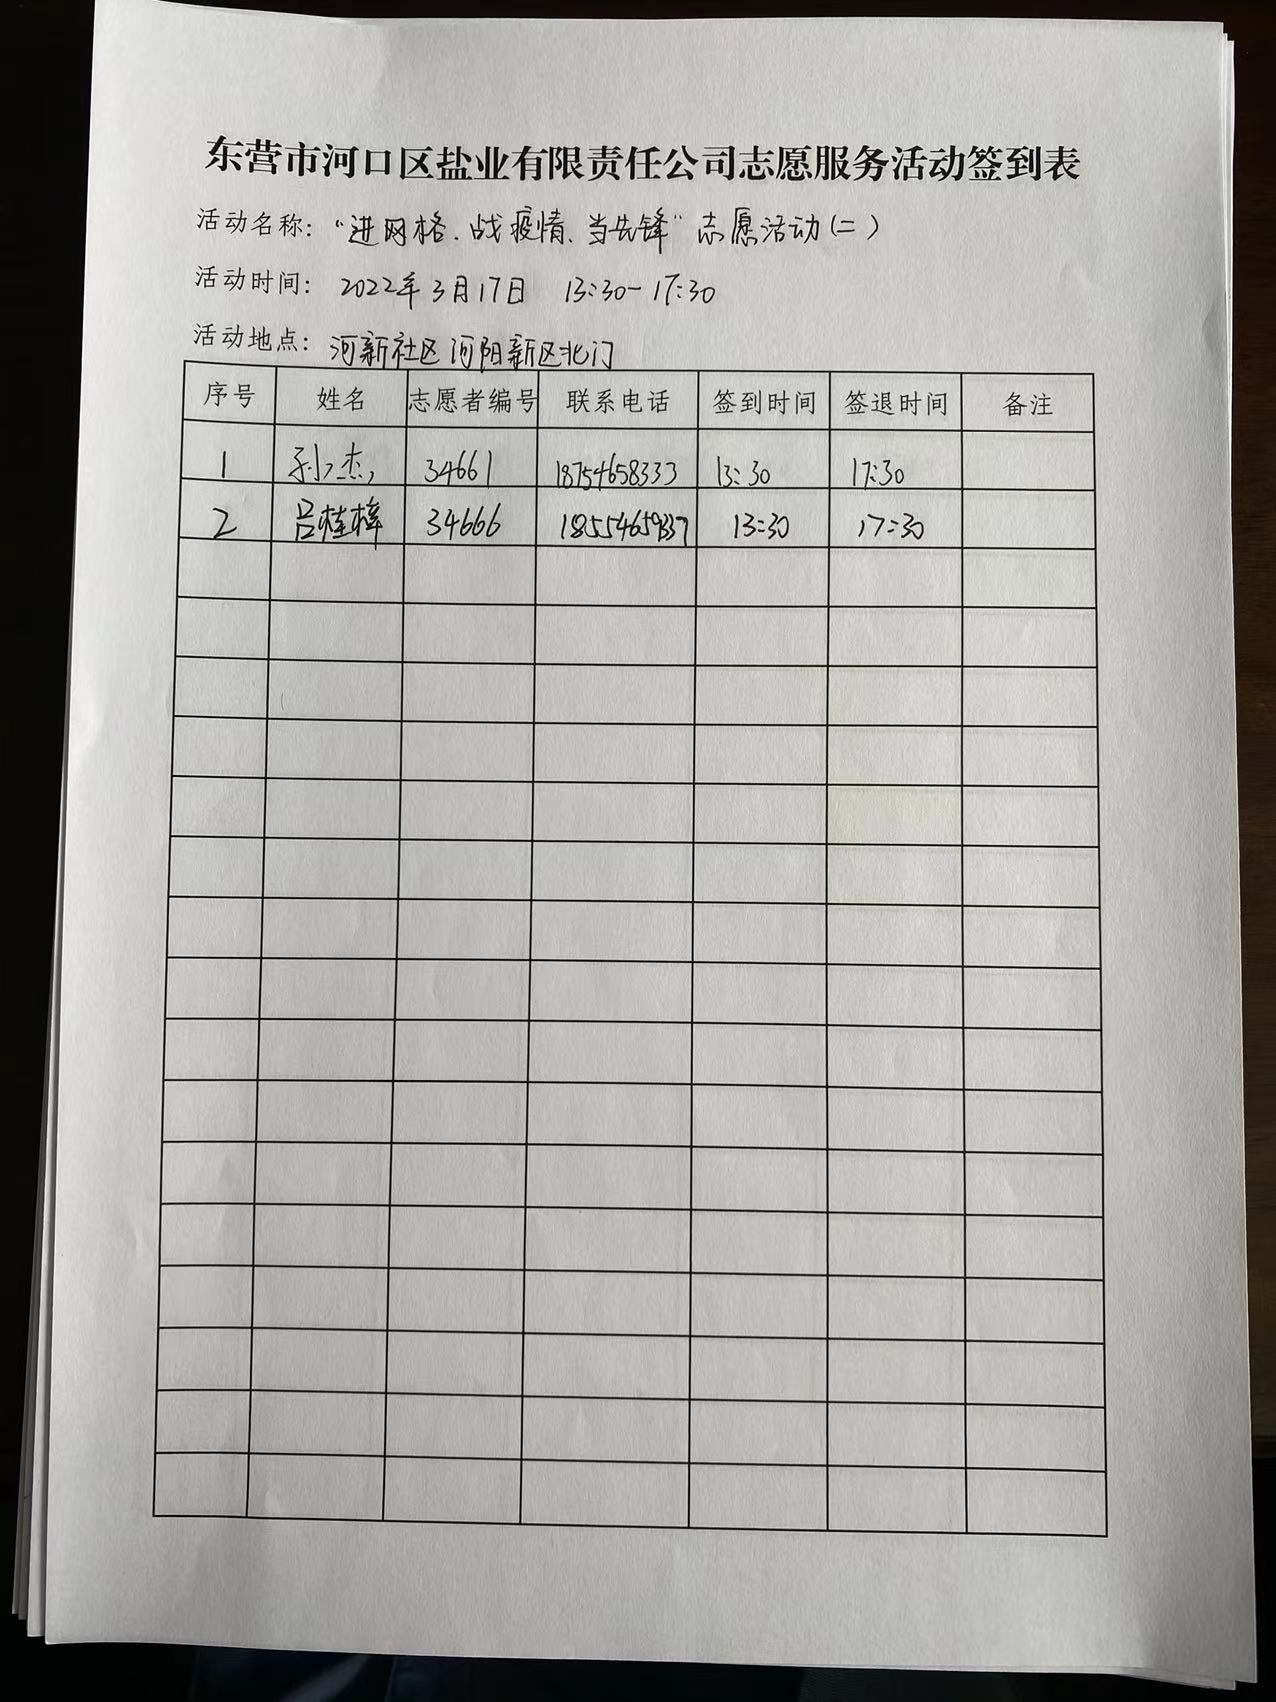 东营市河口区盐业有限责任公司志愿服务活动签到表
活动名称：“进网格、战疫情、当先锋”志愿活动（二）
活动时间：2022年3月17日 13:30-17:30
活动地点：河新社区河阳新区北门
序号 姓名 志愿者编号 联系电话 签到时间 签退时间 备注
1 孙杰 34661 18754658333 13:30 17:30
2 吕桂梓 34666 13:30 17:30